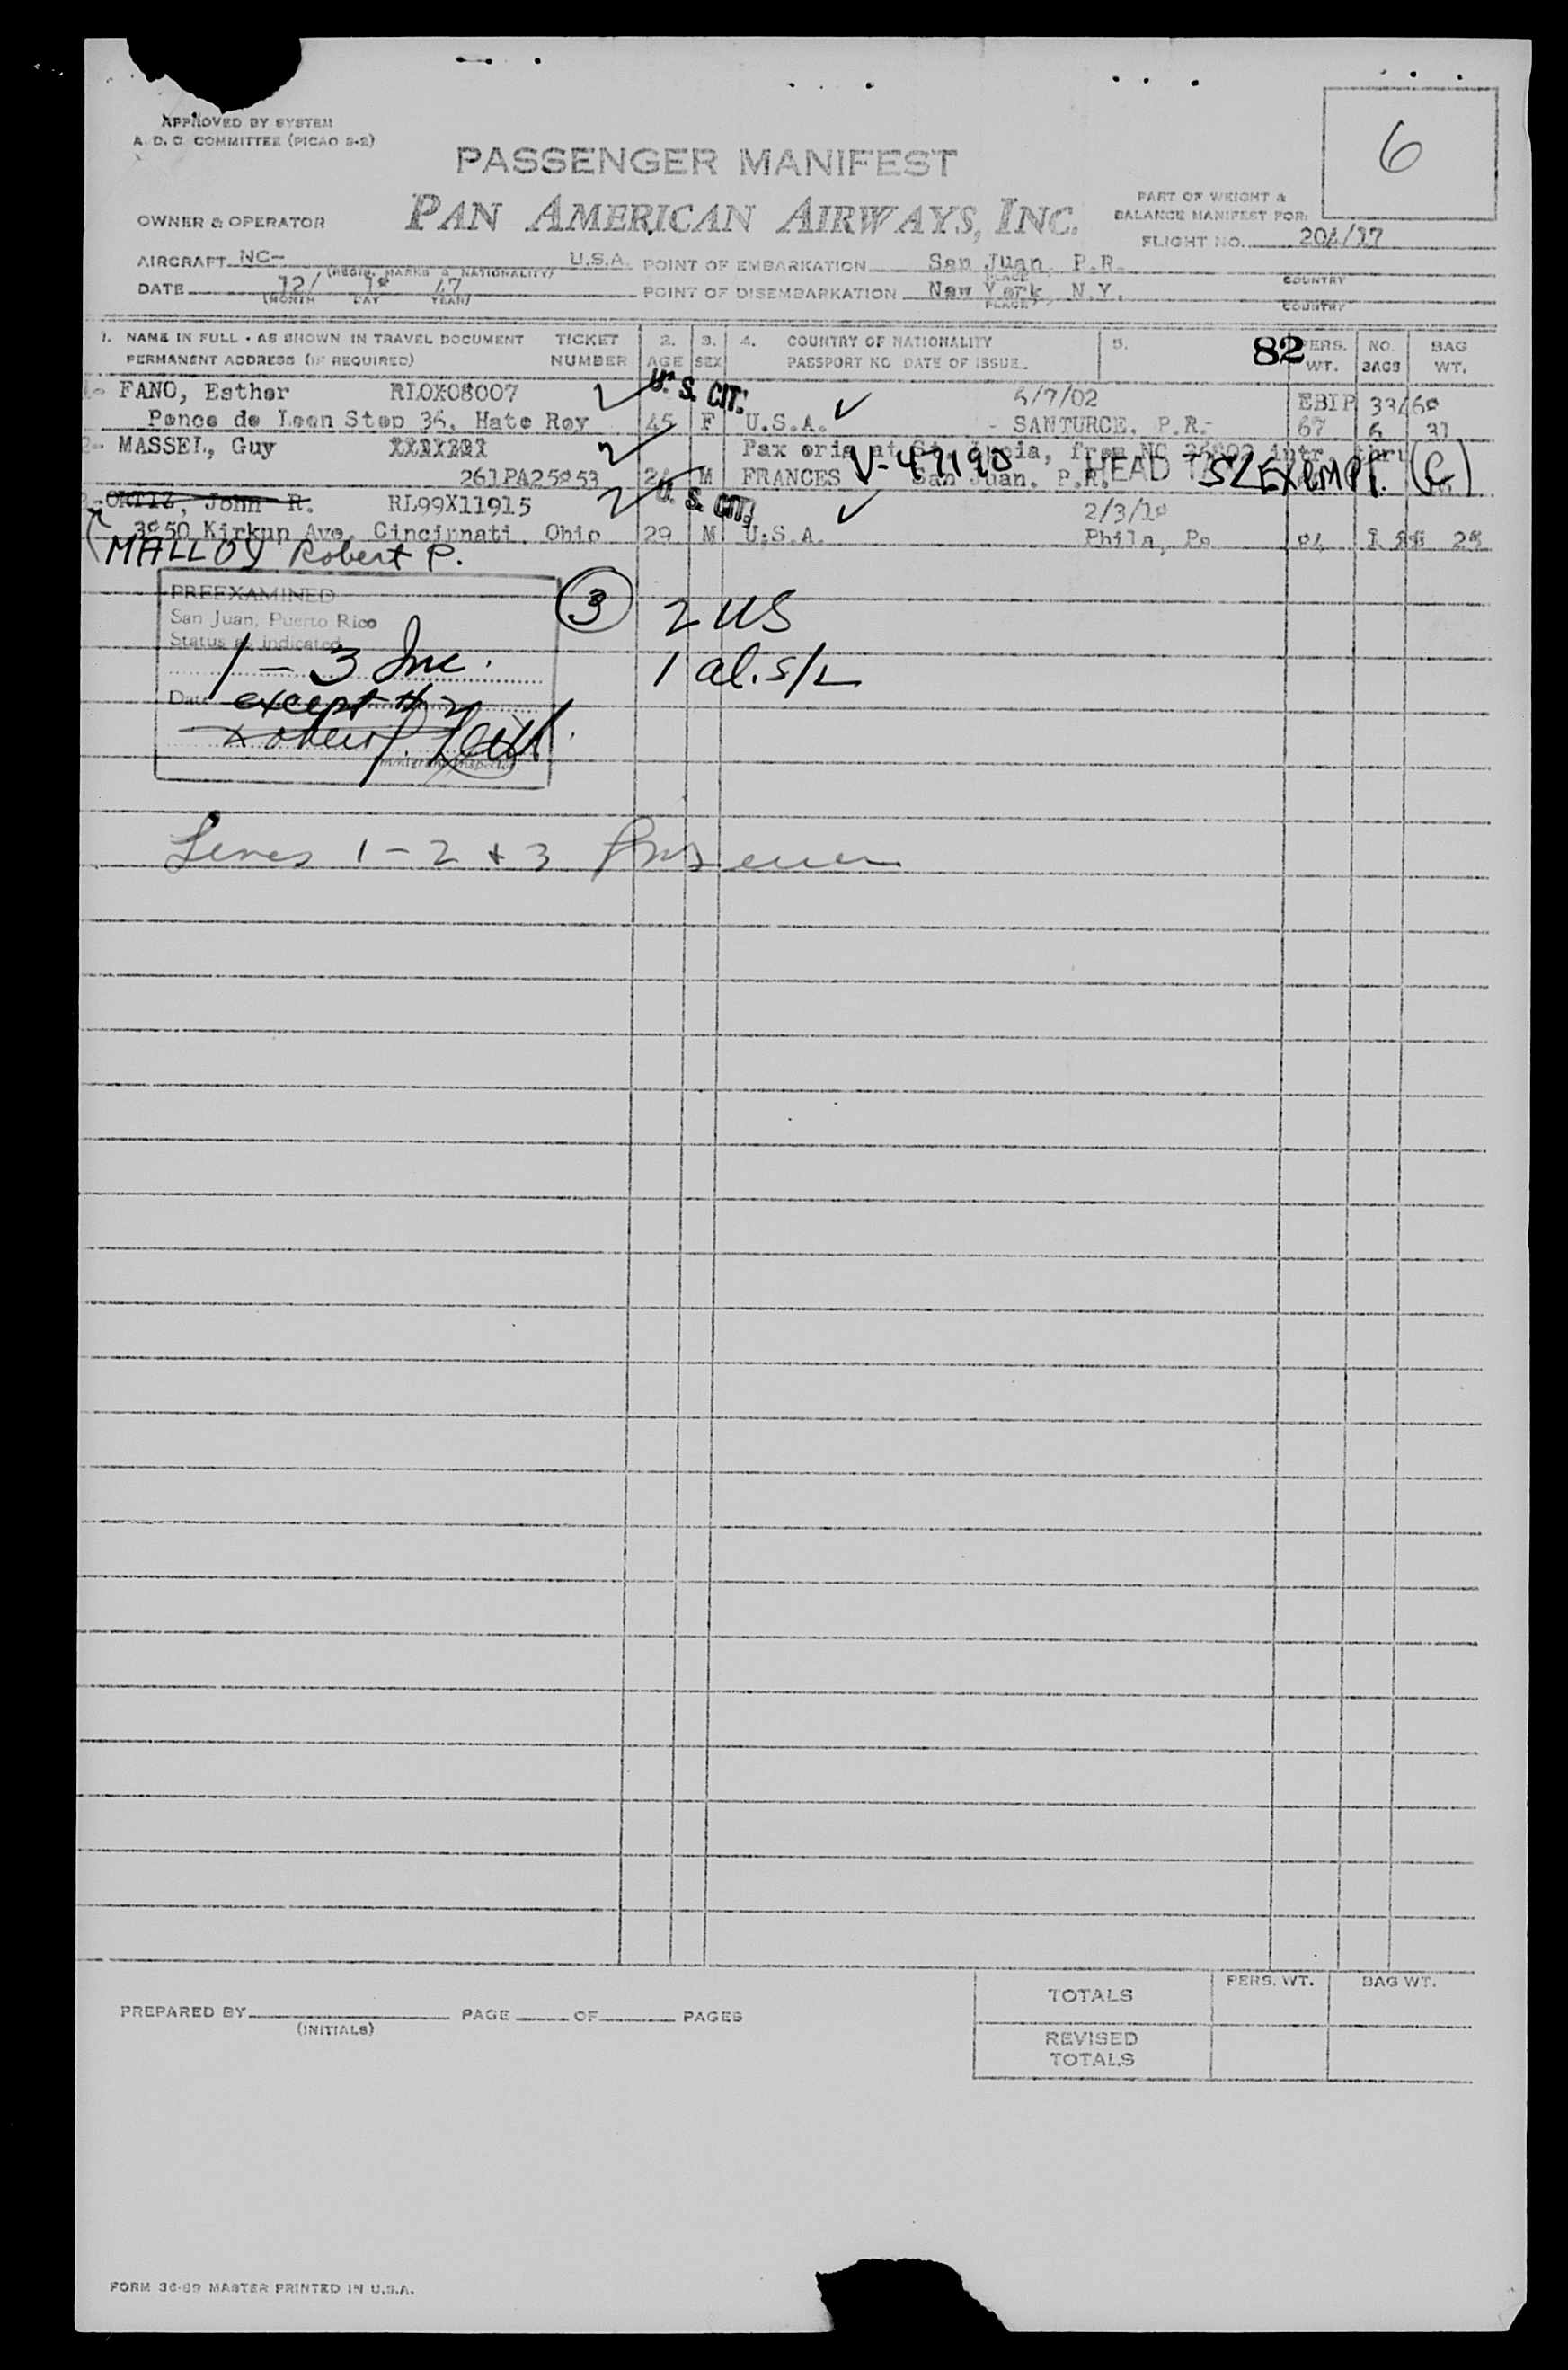 APPROVED BY SYSTEM
A. D. C. COMMITTEE (PICAO S-2)
6
PASSENGER MANIFEST
PAN AMERICAN AIRWAYS, INC.
OWNER & OPERATOR
PART OF WEIGHT &
BALANCE MANIFEST FOR:
FLIGHT NO. 204/17
AIRCRAFT NC- U.S.A. POINT OF EMBARKATION San Juan, P.R.
(REGIS. MARKS & NATIONALITY) PLACE COUNTRY
DATE 12/ 18 47 POINT OF DISEMBARKATION New York, N.Y.
(MONTH DAY YEAR) PLACE COUNTRY
1. NAME IN FULL - AS SHOWN IN TRAVEL DOCUMENT TICKET 2. 3. 4. COUNTRY OF NATIONALITY 5. 82 PERS. NO. BAG
PERMANENT ADDRESS (IF REQUIRED) NUMBER AGE SEX PASSPORT NO DATE OF ISSUE WT. BAGS WT.
1- FANO, Esther RLOX08007 1 ✓ U. S. CIT. ✓ /7/02 EBIP
Ponce de Leon Stop 36, Hato Rey 45 F U.S.A. - SANTURCE, P.R.- 67 6 31
2- MASSEL, Guy 2 ✓ Pax orig at St. Lucia, from NC intr. thru
261PA25853 M FRANCES San Juan, P.R. HEAD EXEMPT. (C)
3- ORTIZ, John R. RL99X11915 2 ✓ U. S. CIT. ✓ 2/3/18
3850 Kirkup Ave, Cincinnati, Ohio 29 M U.S.A. Phila, Pa 25
MALLOY Robert P.
PREEXAMINED
San Juan, Puerto Rico
Status as indicated
1 - 3 Inc.
Date except # 2
Immigrant Inspector
3 2 US
1 al. S/L
Lines 1 - 2 + 3
PREPARED BY PAGE OF PAGES
(INITIALS)
PERS. WT. BAG WT.
TOTALS
REVISED
TOTALS
FORM 36-89 MASTER PRINTED IN U.S.A.